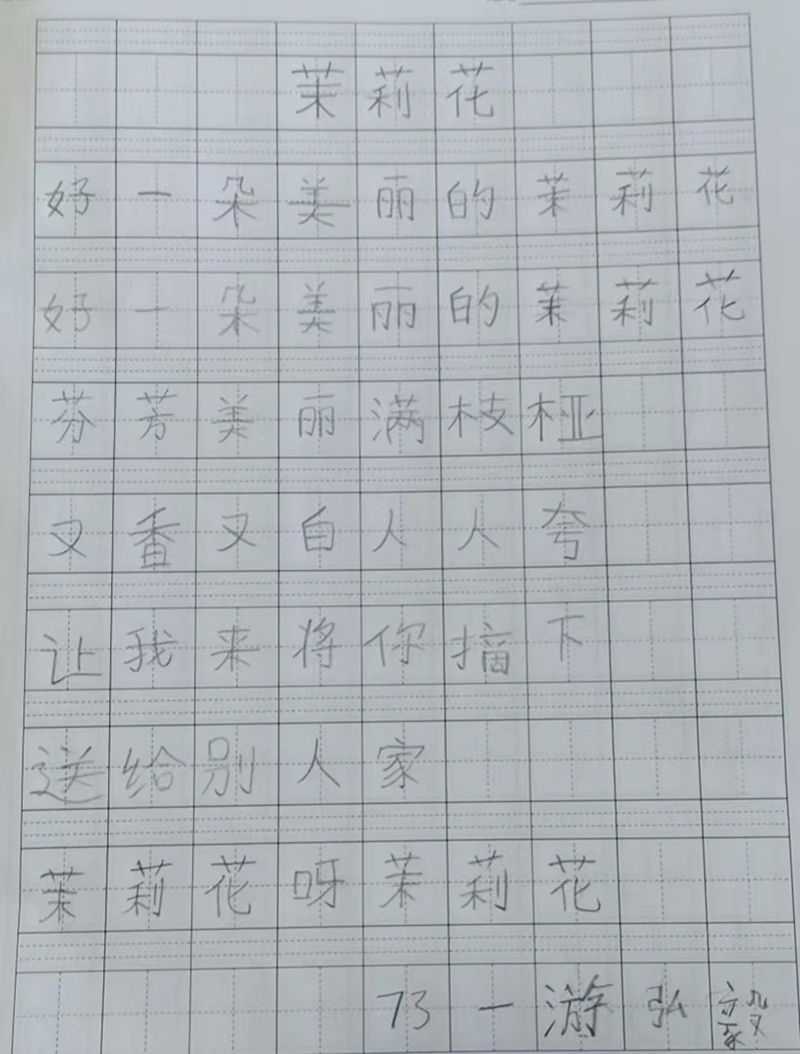 茉莉花
好一朵美丽的茉莉花
好一朵美丽的茉莉花
芬芳美丽满枝桠
又香又白人人夸
让我来将你摘下
送给别人家
茉莉花呀茉莉花
73一游弘毅